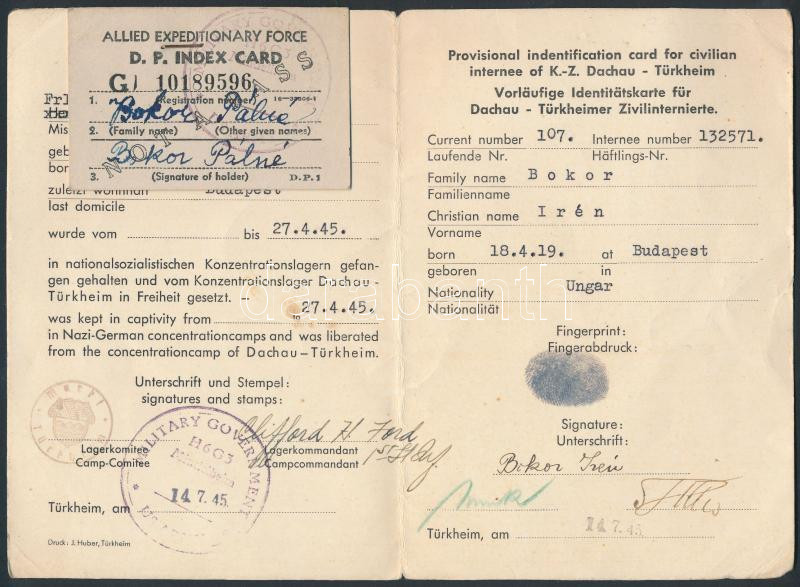 ALLIED EXPEDITIONARY FORCE
D. P. INDEX CARD
G 10189596
1. (Registration number)
Bokor Pálné
2. (Family name) (Other given names)
Bokor Palné
3. (Signature of holder) D.P.1
NOT A PASS
zuletzt wohnhaft Budapest
last domicile
wurde vom bis 27.4.45.
in nationalsozialistischen Konzentrationslagern gefan-
gen gehalten und vom Konzentrationslager Dachau-
Türkheim in Freiheit gesetzt. –
was kept in captivity from to 27.4.45.
in Nazi-German concentrationcamps and was liberated
from the concentrationcamp of Dachau–Türkheim.
Unterschrift und Stempel:
signatures and stamps:
Clifford H. Ford
Lagerkomitee Lagerkommandant
Camp-Comitee Campcommandant
MILITARY GOVERNMENT
H6G3
14.7.45.
Türkheim, am
Druck: J. Huber, Türkheim
Provisional indentification card for civilian
internee of K.-Z. Dachau - Türkheim
Vorläufige Identitätskarte für
Dachau - Türkheimer Zivilinternierte.
Current number 107. Internee number 132571.
Laufende Nr. Häftlings-Nr.
Family name Bokor
Familienname
Christian name Irén
Vorname
born 18.4.19. at Budapest
geboren in
Nationality Ungar
Nationalität
Fingerprint:
Fingerabdruck:
Signature:
Unterschrift:
Bokor Irén
Türkheim, am 14.7.45.
darabanth